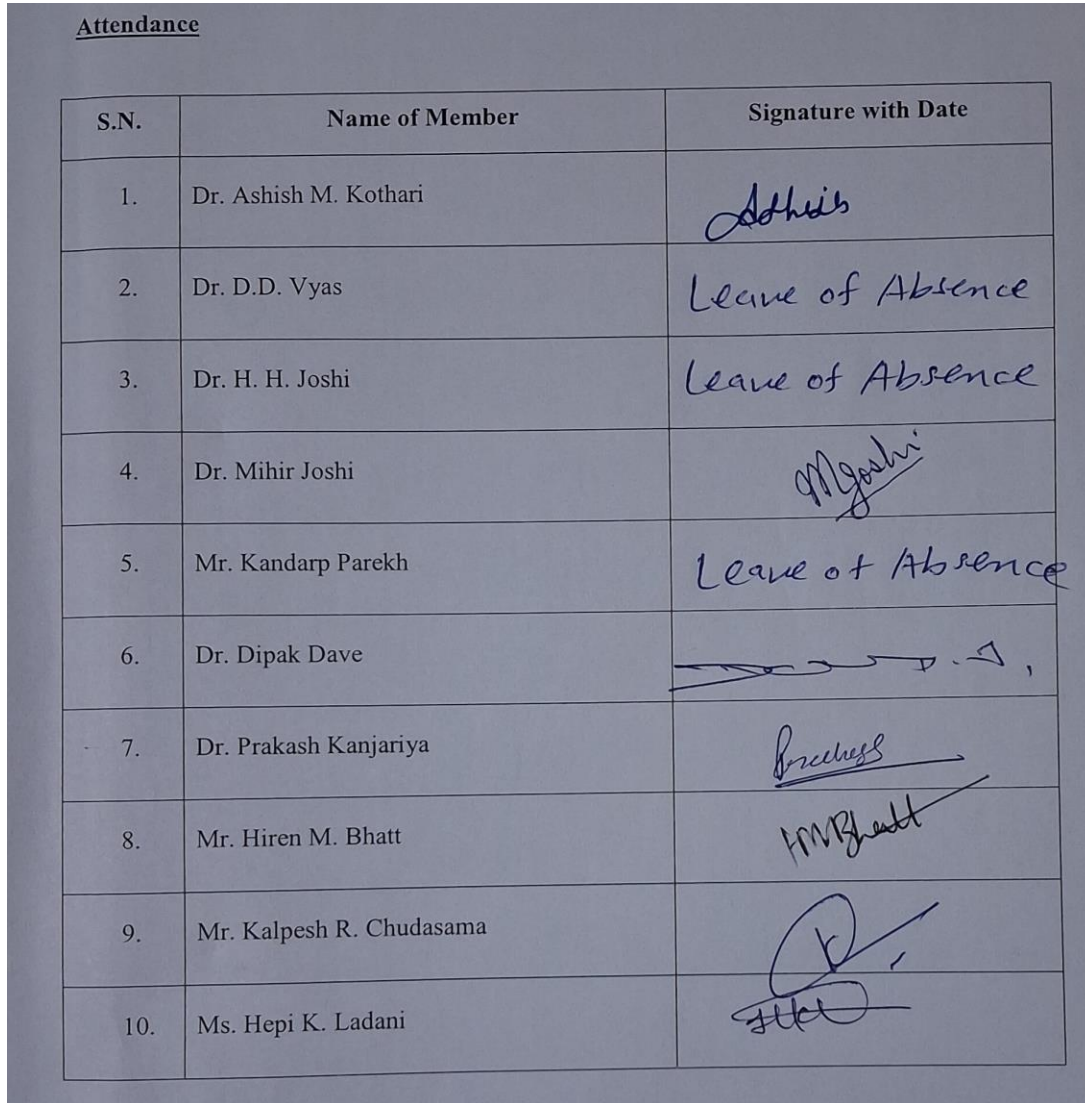 Attendance
S.N. Name of Member Signature with Date
1. Dr. Ashish M. Kothari
2. Dr. D.D. Vyas Leave of Absence
3. Dr. H. H. Joshi Leave of Absence
4. Dr. Mihir Joshi MJoshi
5. Mr. Kandarp Parekh Leave of Absence
6. Dr. Dipak Dave
7. Dr. Prakash Kanjariya
8. Mr. Hiren M. Bhatt HMBhatt
9. Mr. Kalpesh R. Chudasama
10. Ms. Hepi K. Ladani